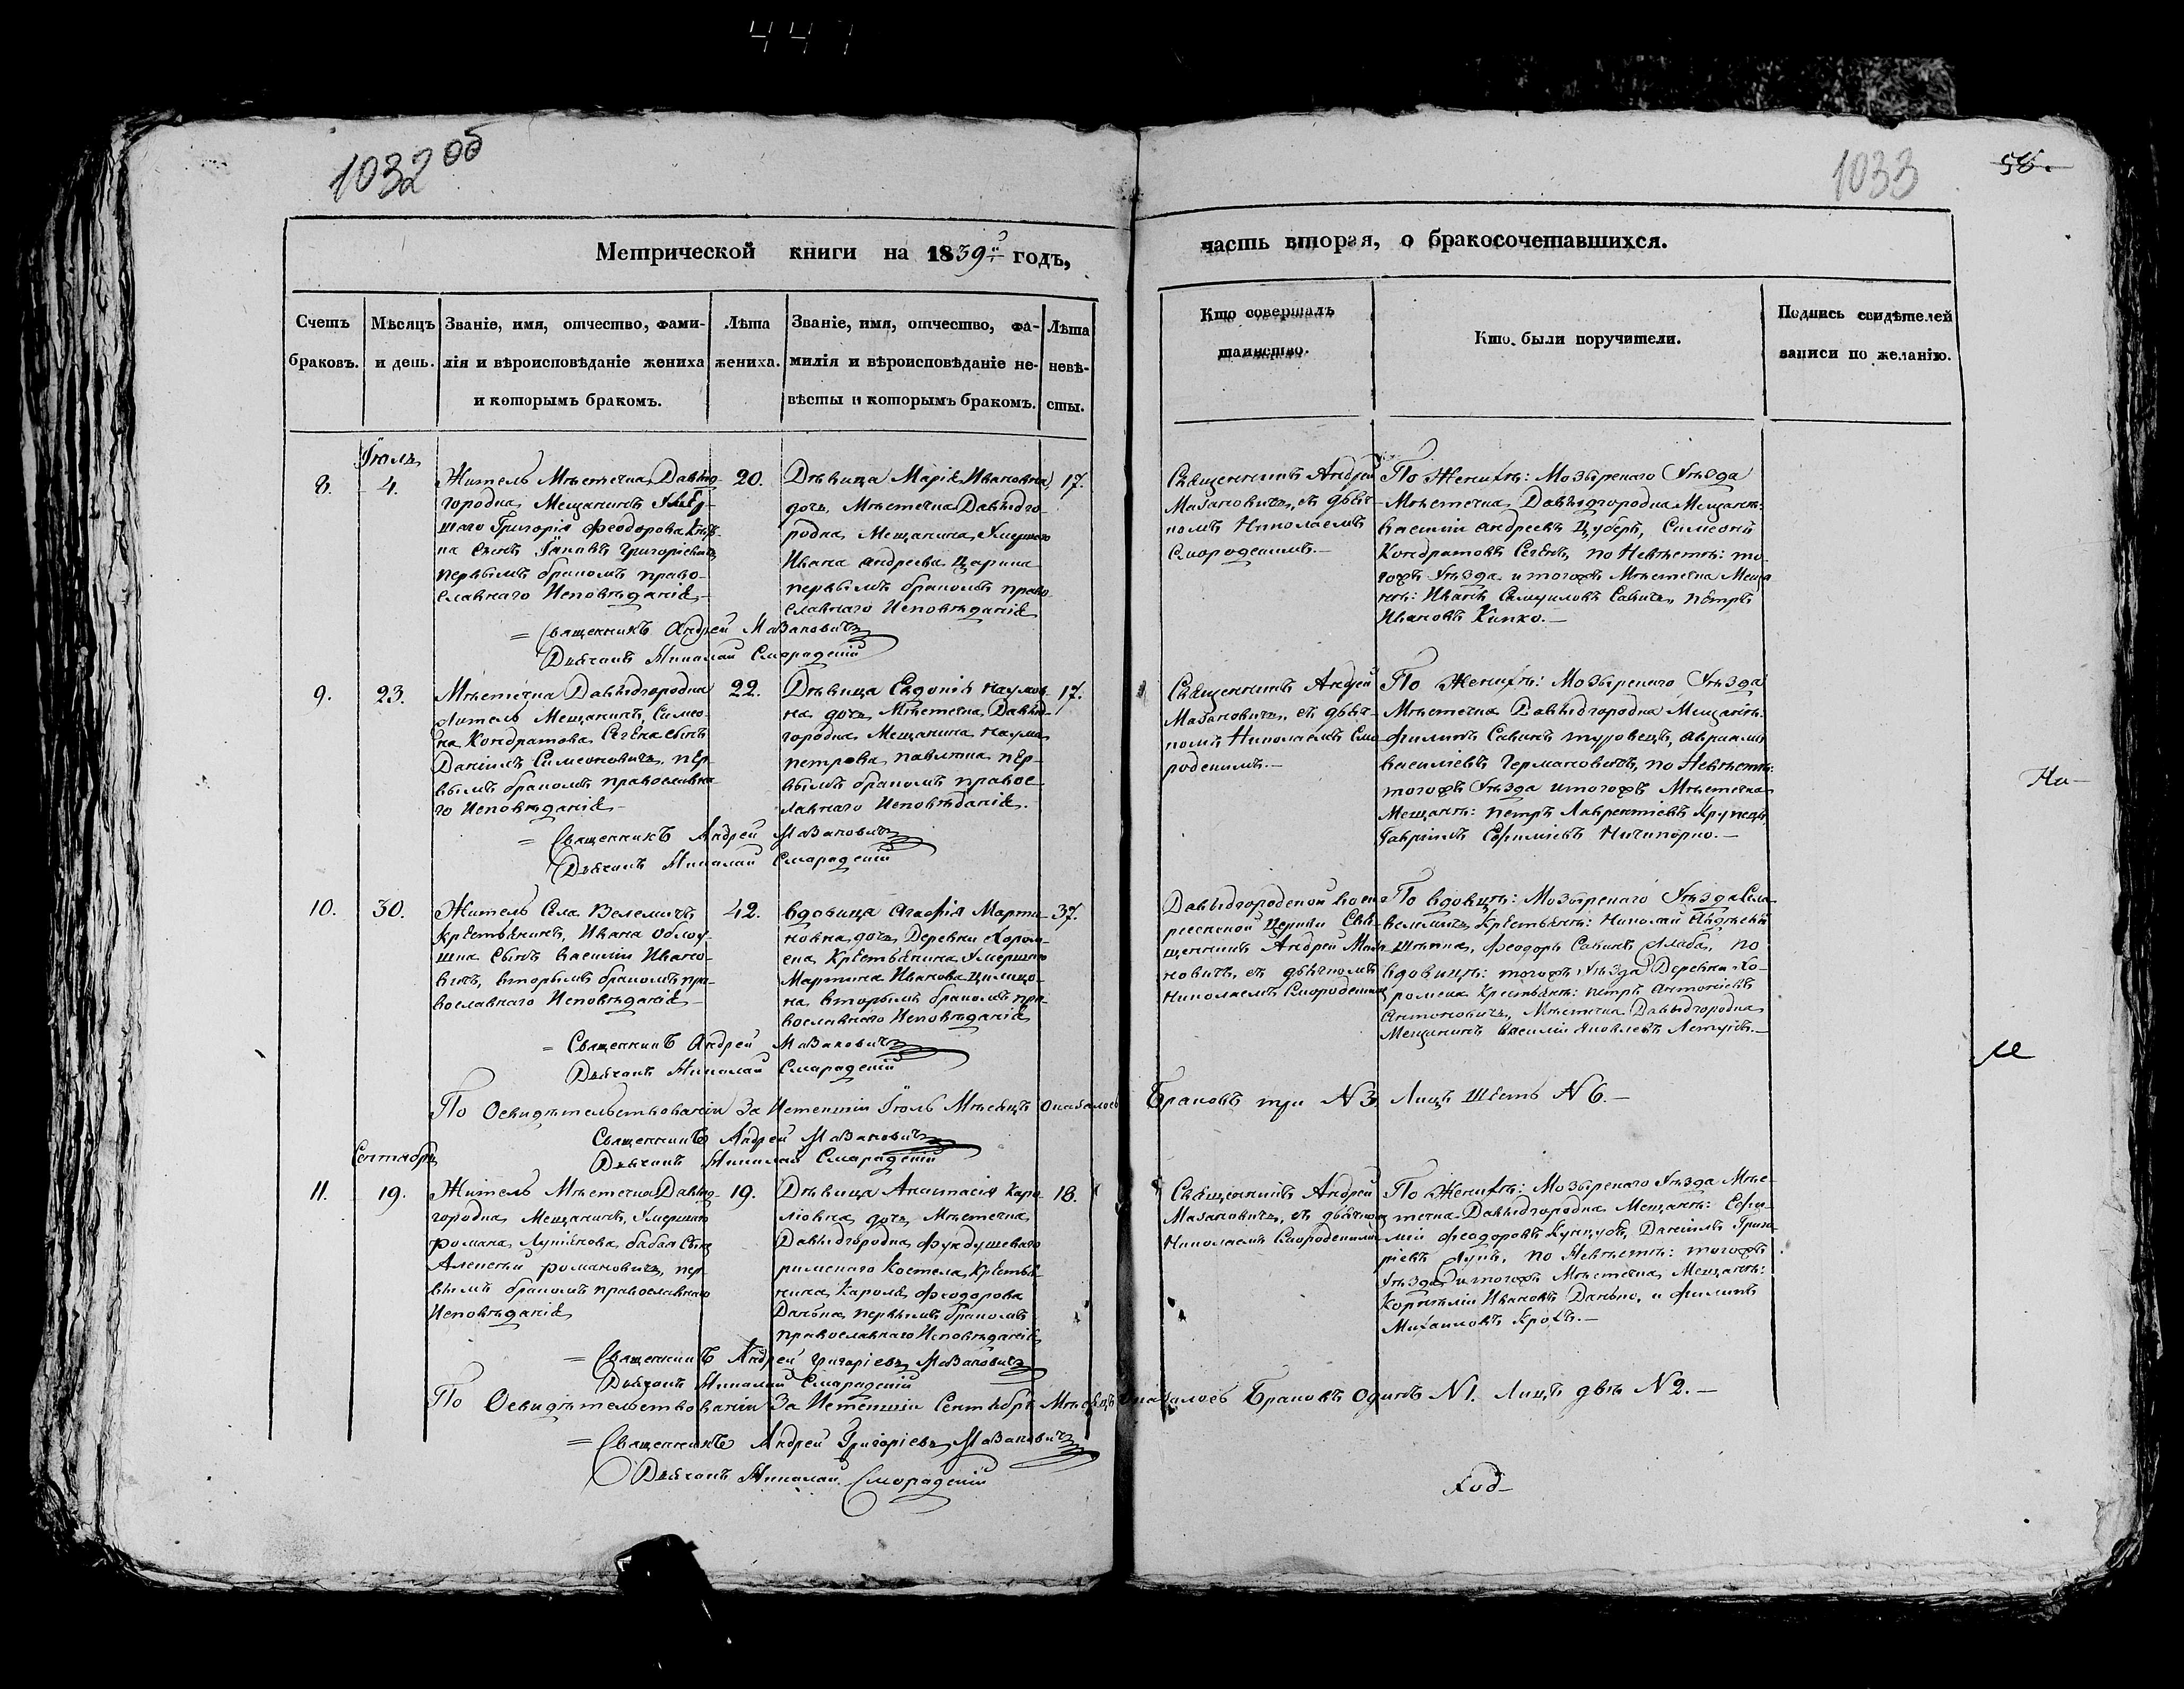 447
1032 об
1033
58.
Метрической книги на 1839й годъ,
часть вторая, о бракосочетавшихся.
Счетъ браковъ.
Мѣсяцъ и день.
Званіе, имя, отчество, фами-
лія и вѣроисповѣданіе жениха
и которымъ бракомъ.
Лѣта жениха.
Званіе, имя, отчество, фа-
милія и вѣроисповѣданіе не-
вѣсты и которымъ бракомъ.
Лѣта невѣ-
сты.
Кто совершалъ
таинство.
Кто были поручители.
Подпись свидѣтелей
записи по желанію.
Іюль
8.
4.
Житель Мѣстечка Давыд-
городка Мещанинъ Умер-
шаго Григорія Феодорова
сынъ Іаковъ Григоріевичъ
первымъ бракомъ право-
славнаго Исповѣданія
20.
Дѣвица Марія Ивановна
дочь Мѣстечка Давыдго-
родка Мещанина Умершаго
Ивана Андреева Царика
первымъ бракомъ право-
славнаго Исповѣданія
17.
Священникъ Андрей
Мазановичъ, съ дьяч-
комъ Николаемъ
Смородскимъ.—
По Женихѣ: Мозырскаго Уѣзда
Мѣстечка Давыдгородка Мещане:
Василій Андреевъ Цуберъ, Симеонъ
Кондратовъ Сегенъ, по Невѣстѣ: то-
гожъ Уѣзда и тогожъ Мѣстечка Меща-
не: Иванъ Самуиловъ Савичъ, Петръ
Ивановъ Кипко.—
= Священникъ Андрей Мазановичъ
Дьячокъ Николай Смородскій
9.
23.
Мѣстечка Давыдгородка
житель Мещанинъ, Симео-
на Кондратова Сегена сынъ
Даніилъ Симеоновичъ, пер-
вымъ бракомъ православна-
го Исповѣданія
22.
Дѣвица Евдокія Наумов-
на дочь Мѣстечка Давыд-
городка Мещанина Наума
Петрова Павлюка пер-
вымъ бракомъ правос-
лавнаго Исповѣданія.
17.
Священникъ Андрей
Мазановичъ, съ дьяч-
комъ Николаемъ Смо-
родскимъ.—
По Женихѣ: Мозырскаго Уѣзда
Мѣстечка Давыдгородка Мещане:
Филипъ Савинъ Туровецъ, Авраамъ
Василіевъ Германовичъ, по Невѣстѣ:
тогожъ Уѣзда и тогожъ Мѣстечка
Мещане: Петръ Лаврентіевъ Крупецъ,
Гавріилъ Ефиміевъ Ничипорко.—
На-
= Священникъ Андрей Мазановичъ
Дьячокъ Николай Смородскій
10.
30.
Житель Села Велемичъ
Крестьянинъ, Ивана
сынъ Василій Ивано-
вичъ, вторымъ бракомъ пра-
вославнаго Исповѣданія
42.
Вдовица Агафія Марти-
новна дочь Деревни Хором-
ска Крестьянина Умершаго
Мартина Иванова
вторымъ бракомъ пра-
вославнаго Исповѣданія
37.
Давыдгородской Воск-
ресенской Церкви Свя-
щенникъ Андрей Маза-
новичъ, съ дьячкомъ
Николаемъ Смородскимъ
По Вдовцѣ: Мозырскаго Уѣзда Села
Велемичъ Крестьяне: Николай
Феодоръ Савинъ Жлаба, по
Вдовицѣ: тогожъ Уѣзда Деревни Хо-
ромска Крестьяне: Петръ Антоніевъ
Антоновичъ, Мѣстечка Давыдгородка
Мещанинъ Василій Яковлевъ
= Священникъ Андрей Мазановичъ
Дьячокъ Николай Смородскій
По Освидѣтельствованіи За Истекшій Іюль Мѣсяцъ Оказалось Браковъ три N 3. Лицъ Шесть N 6.—
Священникъ Андрей Мазановичъ
Дьячокъ Николай Смородскій
Сентябрь
11.
19.
Житель Мѣстечка Давыд-
городка Мещанинъ, Умершаго
Романа Лукіянова Бабая сынъ
Алексѣй Романовичъ, пер-
вымъ бракомъ православнаго
Исповѣданія
19.
Дѣвица Анастасія Каро-
ліовна дочь Мѣстечка
Давыдгородка Фундушеваго
римскаго Костела Крестья-
нина Кароля Феодорова
Данька первымъ бракомъ
православнаго Исповѣданія
18.
Священникъ Андрей
Мазановичъ, съ дьячкомъ
Николаемъ Смородскимъ
По Женихѣ: Мозырскаго Уѣзда Мѣс-
течка Давыдгородка Мещане: Ефи-
мій Феодоровъ Даніилъ Григо-
ріевъ по Невѣстѣ: тогожъ
Уѣзда и тогожъ Мѣстечка Мещане:
Корнилій Ивановъ Данько, и Филипъ
Михаиловъ
= Священникъ Андрей Григоріевъ Мазановичъ
Дьячокъ Николай Смородскій
По Освидѣтельствованіи За Истекшій Сентябрь Мѣсяцъ оказалось Браковъ Одинъ N 1. Лицъ двѣ N 2.—
= Священникъ Андрей Григоріевъ Мазановичъ
Дьячокъ Николай Смородскій